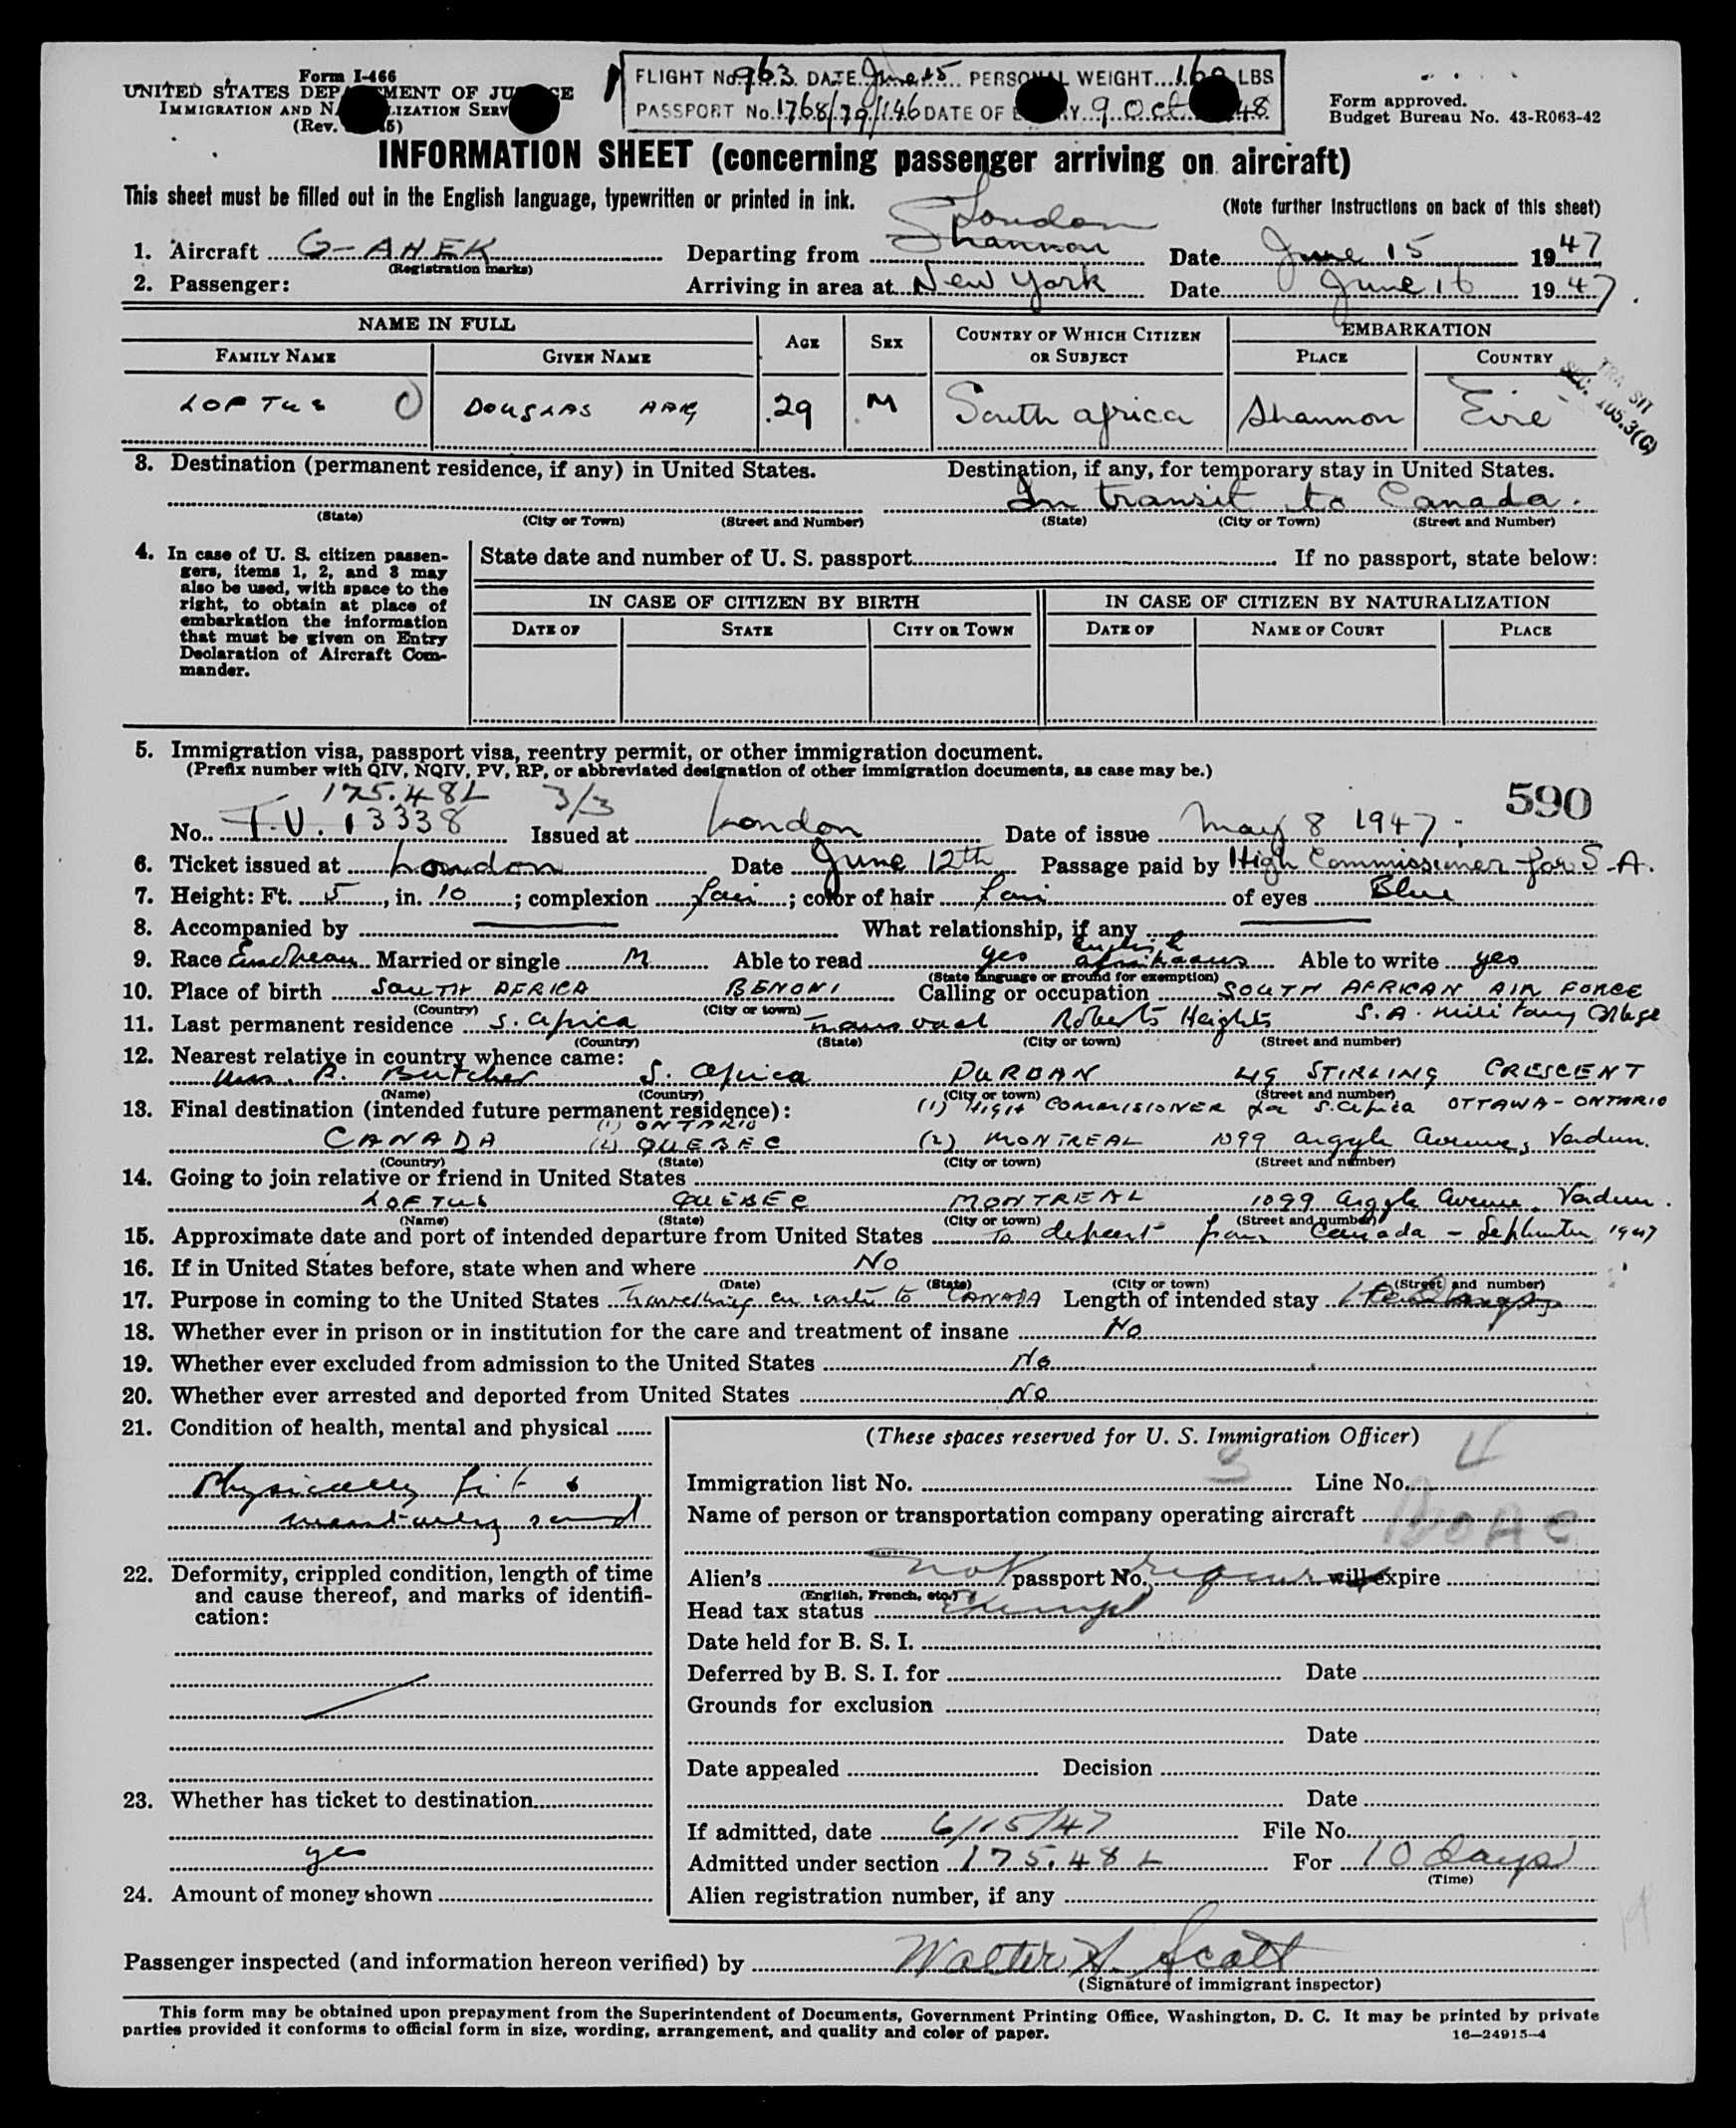 Form I-466
UNITED STATES DEP MENT OF JU CE
IMMIGRATION AND N LIZATION SERV
(Rev. 5)
FLIGHT No. 963 DATE June 15 PERSONAL WEIGHT 160 LBS
PASSPORT No. 1768/79/146 DATE OF Y 9 Oct 48
Form approved.
Budget Bureau No. 43-R063-42
INFORMATION SHEET (concerning passenger arriving on aircraft)
This sheet must be filled out in the English language, typewritten or printed in ink.
(Note further instructions on back of this sheet)
London
1. Aircraft G-AHEK Departing from Shannon Date June 15 1947
(Registration marks)
2. Passenger: Arriving in area at New York Date June 16 1947.
NAME IN FULL AGE SEX COUNTRY OF WHICH CITIZEN OR SUBJECT EMBARKATION
FAMILY NAME GIVEN NAME PLACE COUNTRY
LOFTUS DOUGLAS HAIG 29 M South Africa Shannon Eire
TRANSIT
SEC. 105.3(C)
3. Destination (permanent residence, if any) in United States. Destination, if any, for temporary stay in United States.
In transit to Canada.
(State) (City or Town) (Street and Number) (State) (City or Town) (Street and Number)
4. In case of U. S. citizen passengers, items 1, 2, and 3 may
also be used, with space to the
right, to obtain at place of
embarkation the information
that must be given on Entry
Declaration of Aircraft Commander.
State date and number of U. S. passport If no passport, state below:
IN CASE OF CITIZEN BY BIRTH IN CASE OF CITIZEN BY NATURALIZATION
DATE OF STATE CITY OR TOWN DATE OF NAME OF COURT PLACE
5. Immigration visa, passport visa, reentry permit, or other immigration document.
(Prefix number with QIV, NQIV, PV, RP, or abbreviated designation of other immigration documents, as case may be.)
175.48L 3/3 590
No. T.V. 13338 Issued at London Date of issue May 8 1947.
6. Ticket issued at London Date June 12th Passage paid by High Commissioner for S.A.
7. Height: Ft. 5, in. 10; complexion fair; color of hair fair of eyes Blue
8. Accompanied by — What relationship, if any —
English
9. Race European Married or single M Able to read yes afrikaans Able to write yes
(State language or ground for exemption)
10. Place of birth SOUTH AFRICA BENONI Calling or occupation SOUTH AFRICAN AIR FORCE
(Country) (City or town)
11. Last permanent residence S. Africa Transvaal Roberts Heights S.A. Military College
(Country) (State) (City or town) (Street and number)
12. Nearest relative in country whence came:
Mrs. P. Butcher S. Africa DURBAN 49 STIRLING CRESCENT
(Name) (Country) (City or town) (Street and number)
13. Final destination (intended future permanent residence): (1) HIGH COMMISSIONER for S. Africa OTTAWA - ONTARIO
(1) ONTARIO
CANADA (2) QUEBEC (2) MONTREAL 1099 Argyle Avenue, Verdun.
(Country) (State) (City or town) (Street and number)
14. Going to join relative or friend in United States
LOFTUS QUEBEC MONTREAL 1099 Argyle Avenue, Verdun.
(Name) (State) (City or town) (Street and number)
15. Approximate date and port of intended departure from United States To depart from Canada - September 1947
16. If in United States before, state when and where No
(Date) (State) (City or town) (Street and number)
17. Purpose in coming to the United States Travelling en route to CANADA Length of intended stay
18. Whether ever in prison or in institution for the care and treatment of insane No
19. Whether ever excluded from admission to the United States No
20. Whether ever arrested and deported from United States No
21. Condition of health, mental and physical
Physically fit &
mentally sound
22. Deformity, crippled condition, length of time
and cause thereof, and marks of identification:
23. Whether has ticket to destination
yes
24. Amount of money shown
(These spaces reserved for U. S. Immigration Officer)
Immigration list No. 3 Line No. 4
Name of person or transportation company operating aircraft BOAC
Alien's not passport No. requir will expire
(English, French, etc.)
Head tax status exempt
Date held for B. S. I.
Deferred by B. S. I. for Date
Grounds for exclusion
Date
Date appealed Decision
Date
If admitted, date 6/15/47 File No.
Admitted under section 175.48 L For 10 days
(Time)
Alien registration number, if any
Passenger inspected (and information hereon verified) by Walter H. Scott
(Signature of immigrant inspector)
This form may be obtained upon prepayment from the Superintendent of Documents, Government Printing Office, Washington, D. C. It may be printed by private
parties provided it conforms to official form in size, wording, arrangement, and quality and color of paper. 16—24915-4